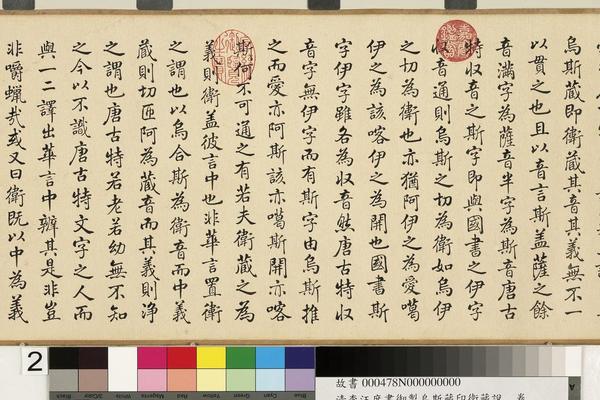 烏斯藏即衛藏其音其義無不一
以貫之也且以音言斯蓋薩之餘
音滿字為薩音半字為斯音唐古
特收音之斯字即與國書之伊字
收音通則烏斯之切為衛如烏伊
之切為衛也亦猶阿伊之為愛噶
伊之為該喀伊之為開也國書斯
字伊字雖各為收音然唐古特收
音字無伊字而有斯字由烏斯推
之而愛亦阿斯該亦噶斯開亦喀
斯何不可通之有若夫衛藏之為
義則衛蓋彼言中也非華言置衛
之謂也以烏合斯為衛音而中義
藏則切匝阿為藏音而其義則净
之謂也唐古特若老若幼無不知
之今以不識唐古特文字之人而
與一二譯出華言中辨其是非豈
非嚼蠟哉或又曰衛既以中為義
2
Black
3/Color
White
Magenta
Red
Yellow
Green
Cyan
Blue
故書 000478N000000000
清李汪度書御製烏斯藏即衛藏說 卷
A